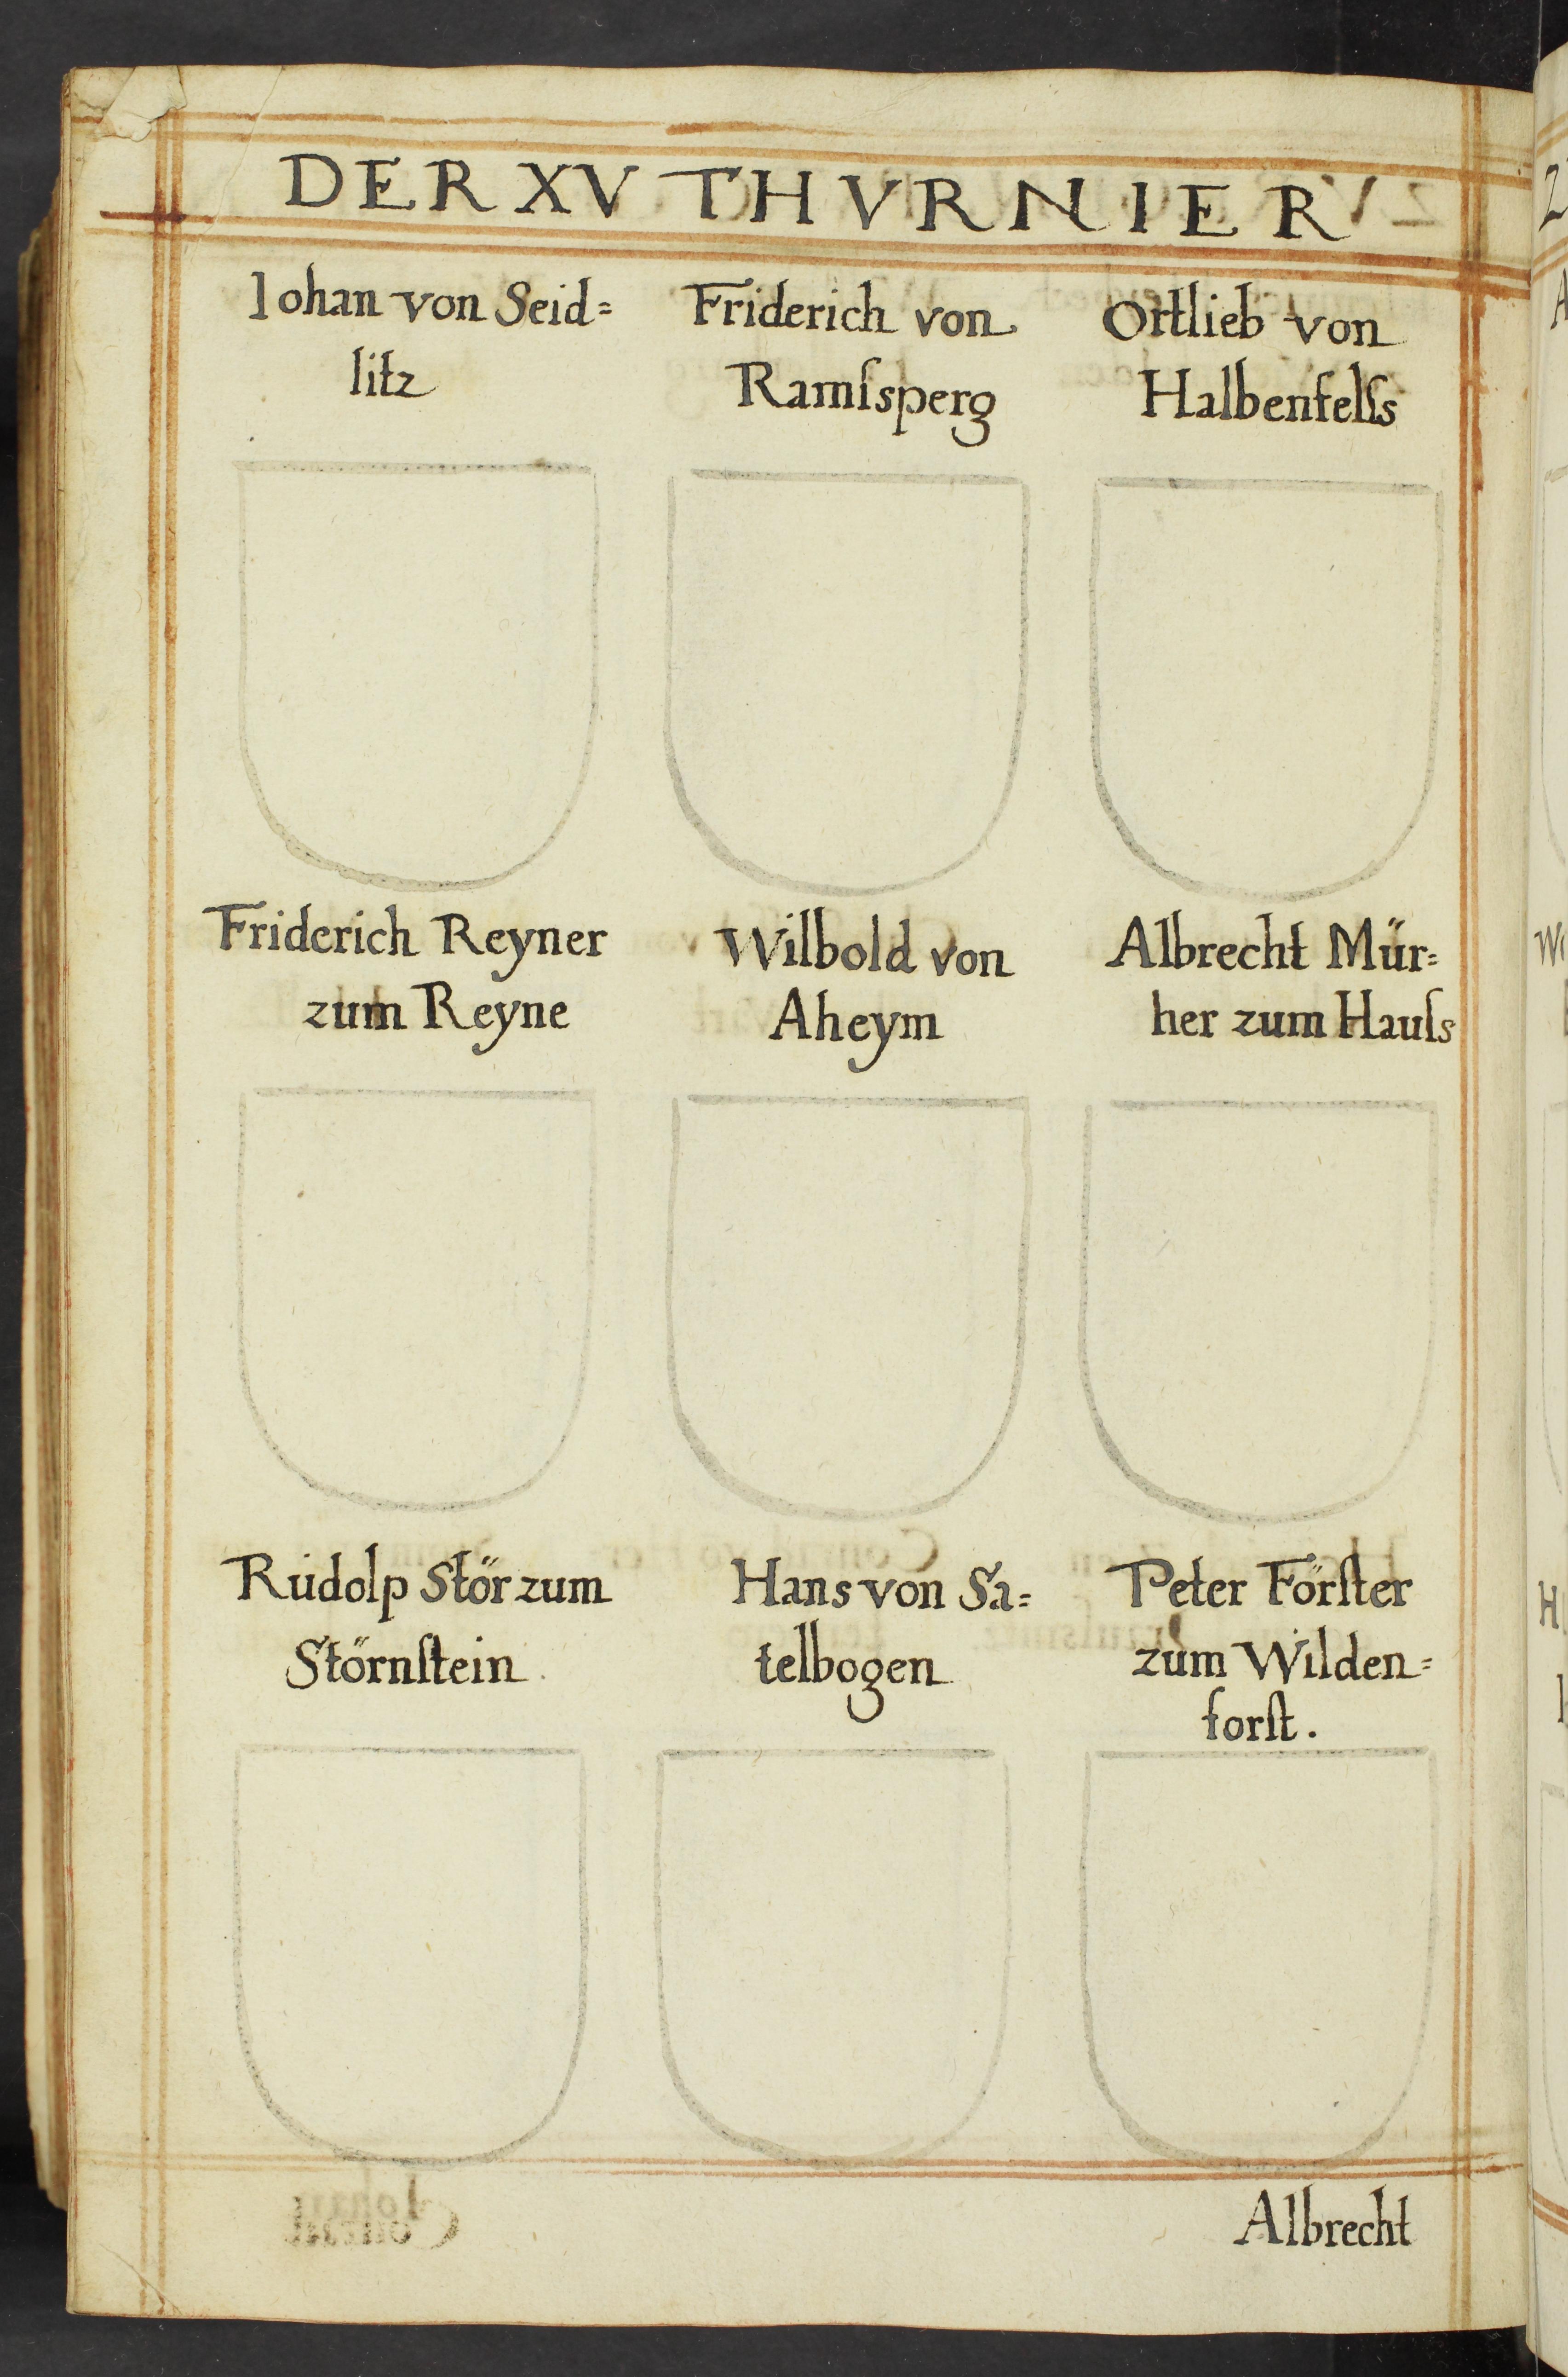 DER XV THVRNIER
Iohan von Seid=
litz
Friderich von
Ramſsperg
Ortlieb von
Halbenfelſs
Friderich Reyner
zum Reyne
Wilbold von
Aheym
Albrecht Mür=
her zum Hauſs
Rudolp Stör zum
Störnſtein
Hans von Sa=
telbogen
Peter Förſter
zum Wilden=
forſt.
Albrecht